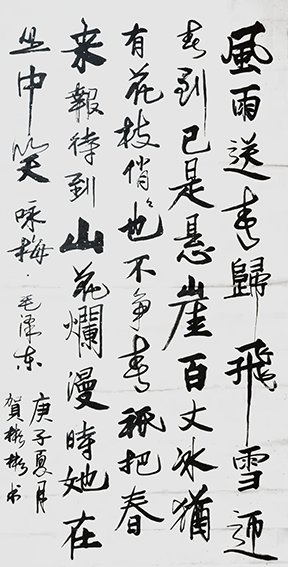 風雨送春歸飛雪迎
春到已是悬崖百丈冰猶
有花枝俏々也不争春祇把春
来報待到山花爛漫時她在
丛中笑 咏梅·毛澤东
庚子夏月
賀彬彬书